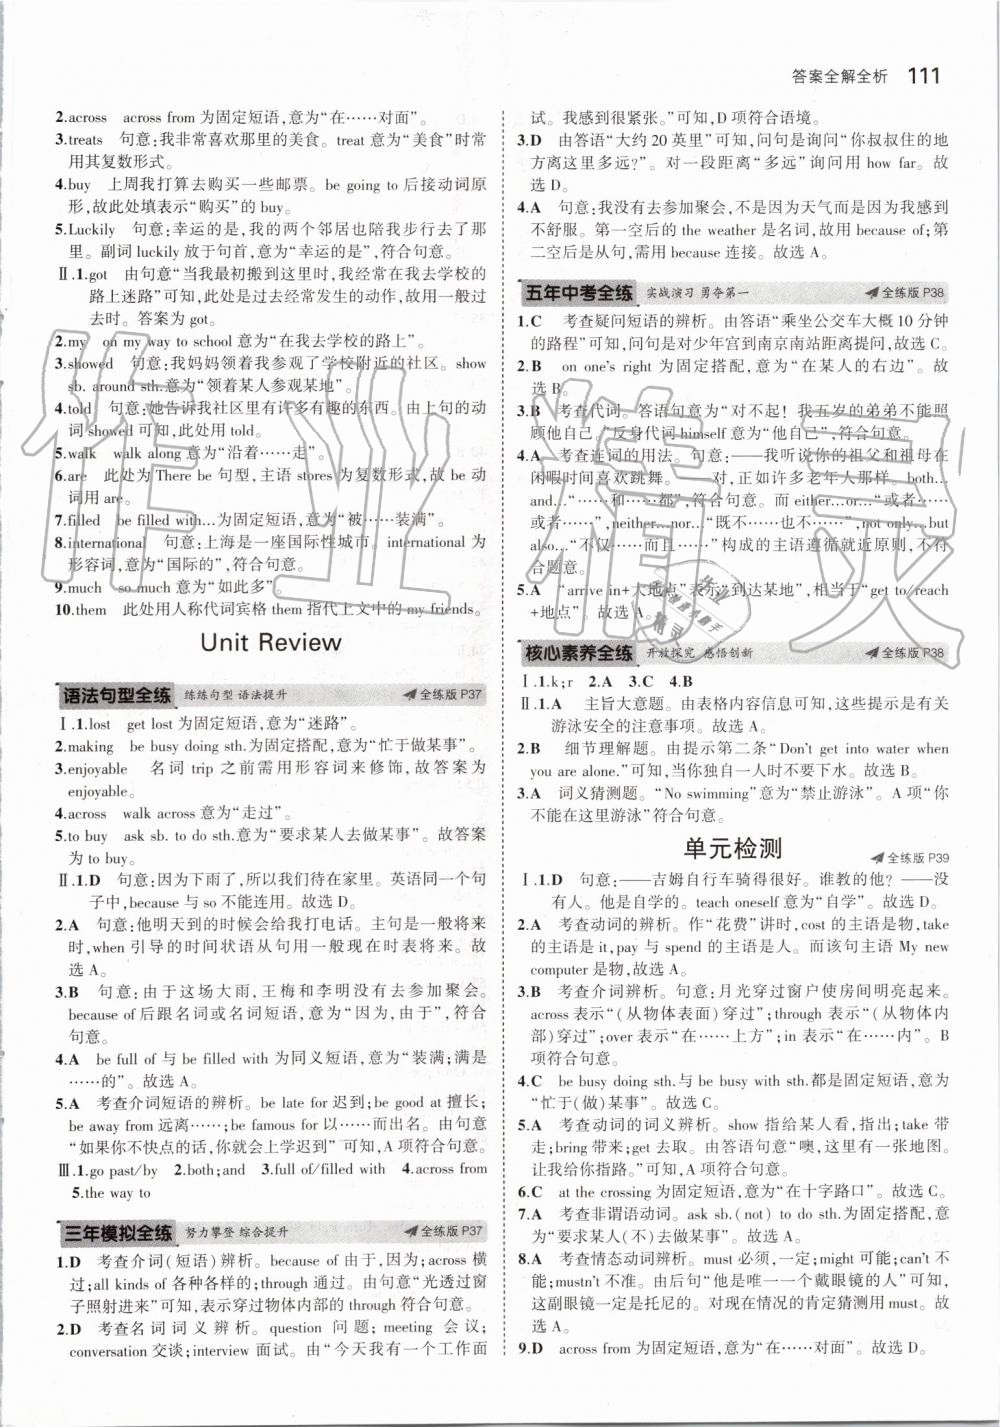 答案全解全析 111
2.across across from 为固定短语,意为“在……对面”。
3.treats 句意:我非常喜欢那里的美食。treat 意为“美食”时常
用其复数形式。
4.buy 上周我打算去购买一些邮票。be going to 后接动词原
形,故此处填表示“购买”的 buy。
5.Luckily 句意:幸运的是,我的两个邻居也陪我步行去了那
里。副词 luckily 放于句首,意为“幸运的是”,符合句意。
Ⅱ.1.got 由句意“当我最初搬到这里时,我经常在我去学校的
路上迷路”可知,此处指过去经常发生的动作,故用一般过
去时。答案为 got。
2.my on my way to school 意为“在我去学校的路上”。
3.showed 句意:我妈妈领着我参观了学校附近的社区。show
sb. around sth.意为“领着某人参观某地”。
4.told 句意:她告诉我社区里有许多有趣的东西。由上句的动
词 showed 可知,此处用 told。
5.walk walk along 意为“沿着……走”。
6.are 此处为 There be 句型,主语 stores 为复数形式,故 be 动
词用 are。
7.filled be filled with...为固定短语,意为“被……装满”。
8.international 句意:上海是一座国际性城市。international 为
形容词,意为“国际的”,符合句意。
9.much so much 意为“如此多”。
10.them 此处用人称代词宾格 them 指代上文中的 my friends。
Unit Review
语法句型全练 练练句型 语法提升 全练版 P37
Ⅰ.1.lost get lost 为固定短语,意为“迷路”。
2.making be busy doing sth.为固定搭配,意为“忙于做某事”。
3.enjoyable 名词 trip 之前需用形容词来修饰,故答案为
enjoyable。
4.across walk across 意为“走过”。
5.to buy ask sb. to do sth.意为“要求某人去做某事”。故答案
为 to buy。
Ⅱ.1.D 句意:因为下雨了,所以我们待在家里。英语同一个句
子中,because 与 so 不能连用。故选 D。
2.A 句意:他明天到的时候会给我打电话。主句是一般将来
时,when 引导的时间状语从句用一般现在时表将来。故
选 A。
3.B 句意:由于这场大雨,王梅和李明没有参加聚会。
because of 后跟名词或名词短语,意为“因为,由于”,符合
句意。
4.A be full of 与 be filled with 为同义短语,意为“装满;满是
……的”。故选 A。
5.A 考查介词短语的辨析。be late for 迟到;be good at 擅长;
be away from 远离……;be famous for 以……而出名。由句意
“如果你不快点的话,你就会上学迟到”可知,A 项符合句意。
Ⅲ.1.go past/by 2.both;and 3.full of/filled with 4.across from
5.the way to
三年模拟全练 努力攀登 综合提升 全练版 P37
1.D 考查介词(短语)辨析。because of 由于,因为;across 横
过;all kinds of 各种各样的;through 通过。由句意“光透过窗
子照射进来”可知,表示穿过物体内部的 through 符合句意。
2.D 考查名词词义辨析。question 问题;meeting 会议;
conversation 交谈;interview 面试。由“今天我有一个工作面
试。我感到很紧张。”可知,D 项符合语境。
3.D 由答语“大约 20 英里”可知,问句是询问“你叔叔住的地
方离这里多远?”。对一段距离“多远”询问用 how far。故
选 D。
4.A 句意:我没有去参加聚会,不是因为天气而是因为我感到
不舒服。第一空后的 the weather 是名词,故用 because of;第
二空后是从句,需用 because 连接。故选 A。
五年中考全练 实战演习 勇夺第一 全练版 P38
1.C 考查疑问短语的辨析。由答语“乘坐公交车大概 10 分钟
的路程”可知,问句是对少年宫到南京南站距离提问,故选 C。
2.B on one's right 为固定搭配,意为“在某人的右边”。故
选 B。
3.B 考查代词。答语句意为“对不起! 我五岁的弟弟不能照
顾他自己。”反身代词 himself 意为“他自己”,符合句意。
4.A 考查连词的用法。句意:——我听说你的祖父和祖母在
闲暇时间喜欢跳舞。——对,正如许多老年人那样。both...
and...“……和……都”,符合句意。而 either...or...“或者……
或者……”,neither...nor...“既不……也不……”,not only...but
also...“不仅……而且……”构成的主语遵循就近原则,不符
合题意。
5.A “arrive in+大地点”表示“到达某地”,相当于“get to/reach
+地点”。故选 A。
核心素养全练 开放探究 感悟创新 全练版 P38
Ⅰ.1.k;r 2.A 3.C 4.B
Ⅱ.1.A 主旨大意题。由表格内容信息可知,这些提示是有关
游泳安全的注意事项。故选 A。
2.B 细节理解题。由提示第二条“Don't get into water when
you are alone.”可知,当你独自一人时不要下水。故选 B。
3.A 词义猜测题。“No swimming”意为“禁止游泳”。A 项“你
不能在这里游泳”符合句意。
单元检测 全练版 P39
Ⅰ.1.D 句意:——吉姆自行车骑得很好。谁教的他? ——没
有人。他是自学的。teach oneself 意为“自学”。故选 D。
2.A 考查动词的辨析。作“花费”讲时,cost 的主语是物,take
的主语是 it,pay 与 spend 的主语是人。而该句主语 My new
computer 是物,故选 A。
3.B 考查介词辨析。句意:月光穿过窗户使房间明亮起来。
across 表示“(从物体表面)穿过”;through 表示“(从物体内
部)穿过”;over 表示“在……上方”;in 表示“在……内”。B
项符合句意。
4.C be busy doing sth.与 be busy with sth.都是固定短语,意为
“忙于(做)某事”。故选 C。
5.A 考查动词的词义辨析。show 指给某人看,指出;take 带
走;bring 带来;get 去取。由答语句意“噢,这里有一张地图。
让我给你指路。”可知,A 项符合句意。
6.C at the crossing 为固定短语,意为“在十字路口”。故选 C。
7.A 考查非谓语动词。ask sb.(not) to do sth.为固定用法,意
为“要求某人(不)去做某事”。故选 A。
8.A 考查情态动词辨析。must 必须,一定;might 可能;can't 不
能;mustn't 不准。由后句“他是唯一一个戴眼镜的人”可知,
这副眼镜一定是托尼的。对现在情况的肯定猜测用 must。故
选 A。
9.D across from 为固定短语,意为“在……对面”。故选 D。